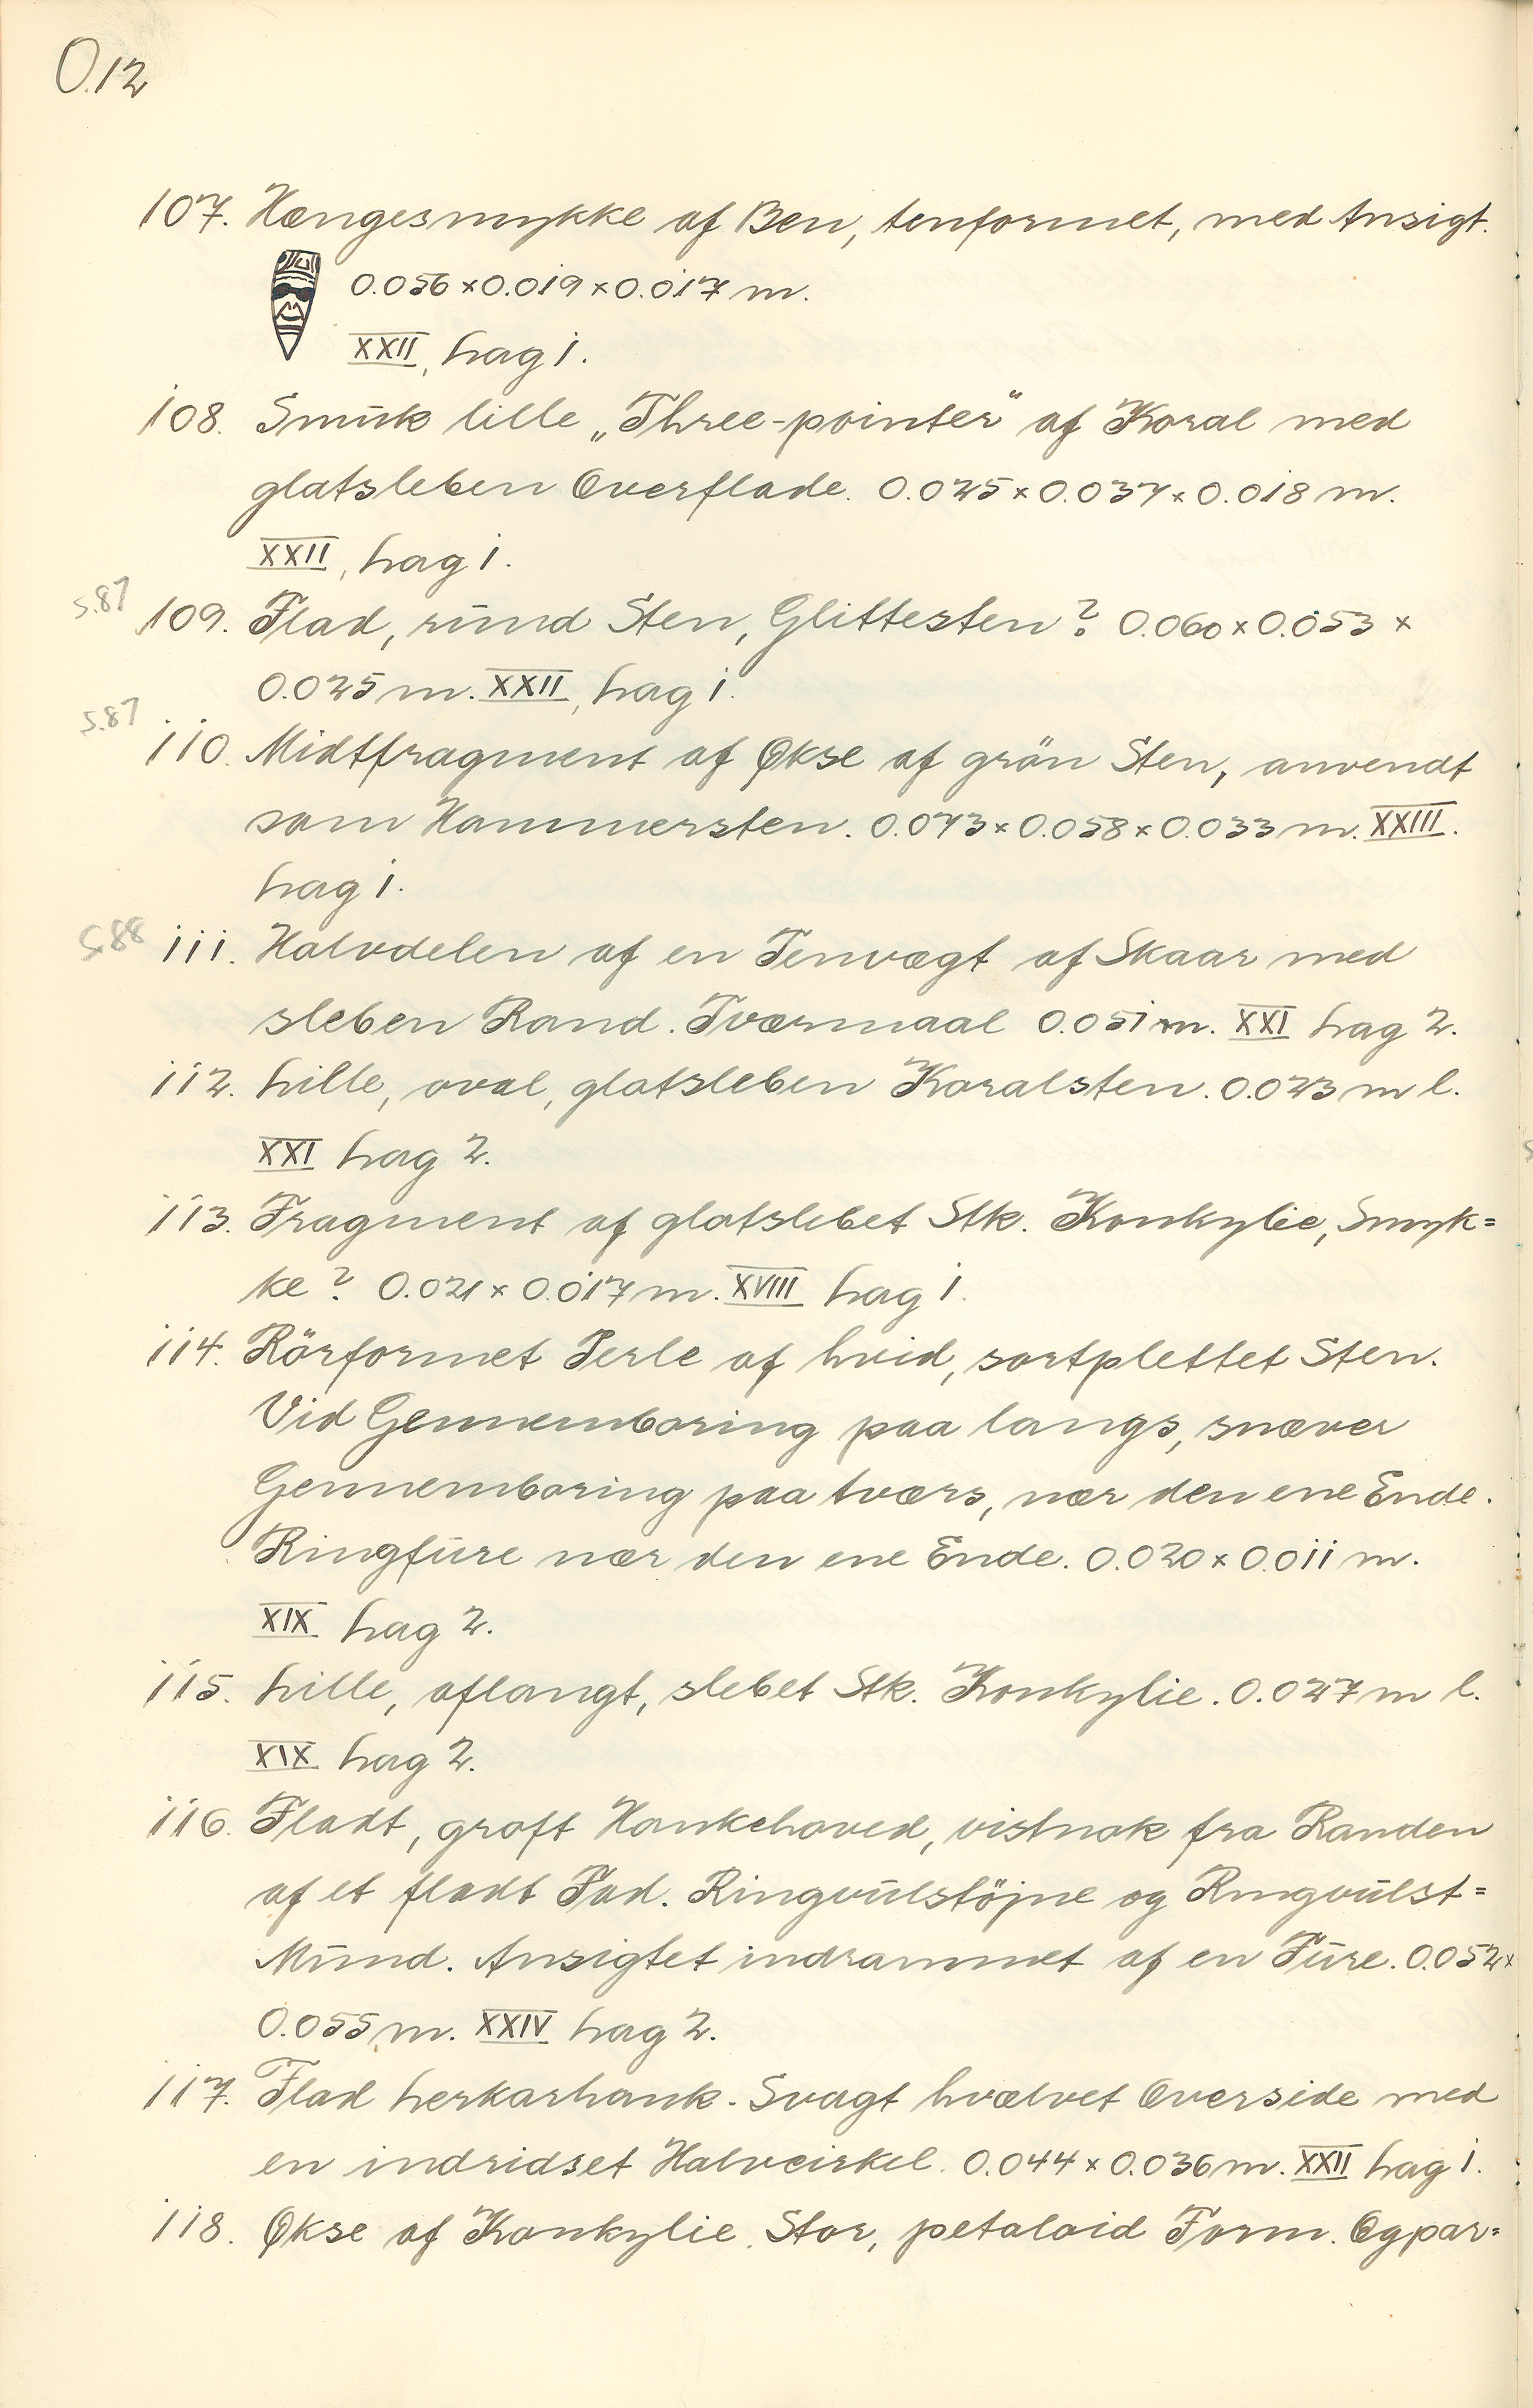 O.12
107. Hængesmykke af Ben, tenformet, med Ansigt.
0.056 x 0.019 x 0.017 m.
XXII, Lag 1.
108. Smuk lille „Three-pointer" af Koral med
glatsleben Overflade. 0.025 x 0.037 x 0.018 m.
XXII, Lag 1.
S.87
109. Flad, rund Sten, Glittesten? 0.060 x 0.053 x
0.025 m. XXII, Lag 1.
S.87
110. Midtfragment af Økse af grön Sten, anvendt
som Hammersten. 0.073 x 0.058 x 0.033 m. XXIII.
Lag 1.
S.88
111. Halvdelen af en Tenvægt af Skaar med
sleben Rand. Tværmaal 0.051 m. XXI Lag 2.
112. Lille, oval, glatsleben Koralsten. 0.023 m l.
XXI Lag 2.
113. Fragment af glatslebet Stk. Konkylie, Smyk=
ke? 0.021 x 0.017 m. XVIII Lag 1.
114. Rörformet Perle af hvid, sortplettet Sten.
Vid Gennemboring paa langs, snæver
Gennemboring paa tværs, nær den ene Ende.
Ringfure nær den ene Ende. 0.020 x 0.011 m.
XIX Lag 2.
115. Lille, aflangt, slebet Stk. Konkylie. 0.027 m l.
XIX Lag 2.
116. Fladt, groft Hankehoved, vistnok fra Randen
af et fladt Fad. Ringvulstöjne og Ringvulst=
Mund. Ansigtet indrammet af en Fure. 0.052 x
0.055 m. XXIV Lag 2.
117. Flad Lerkarhank. Svagt hvælvet Overside med
en indridset Halvcirkel. 0.044 x 0.036 m. XXII Lag 1.
118. Økse af Konkylie. Stor, petaloid Form. Ægpar=